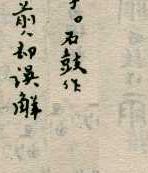 石鼓作
前人却誤解